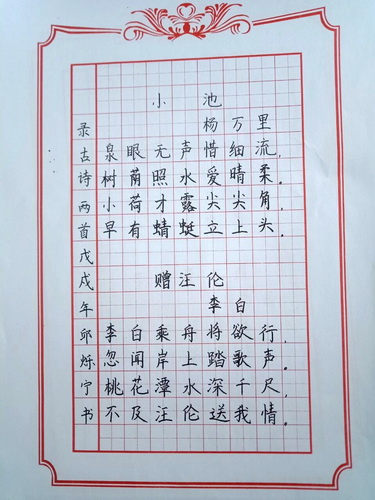 小池
杨万里
泉眼无声惜细流，
树荫照水爱晴柔。
小荷才露尖尖角，
早有蜻蜓立上头。
赠汪伦
李白
李白乘舟将欲行，
忽闻岸上踏歌声。
桃花潭水深千尺，
不及汪伦送我情。
录古诗两首戊戌年邱烁宁书